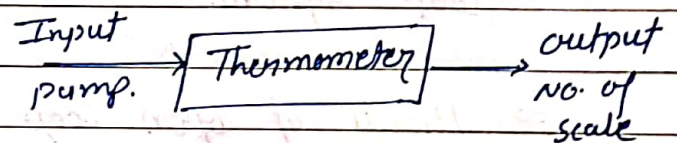 Input
pump.
Thermometer
output
No. of
scale